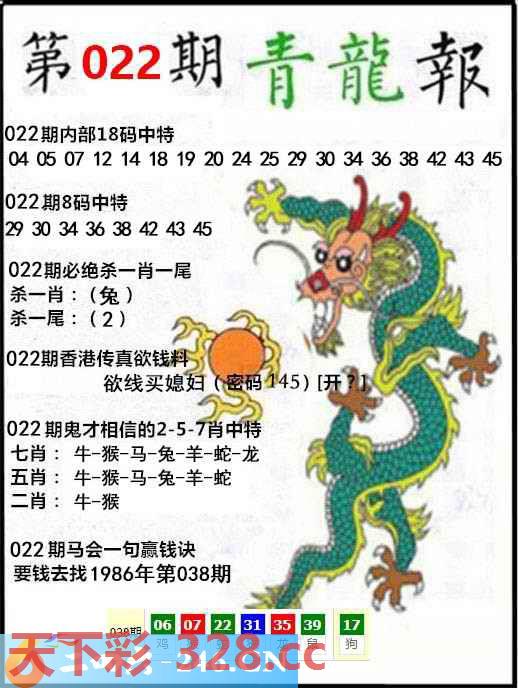 第022期青龍報
022期内部18码中特
04 05 07 12 14 18 19 20 24 25 29 30 34 36 38 42 43 45
022期8码中特
29 30 34 36 38 42 43 45
022期必绝杀一肖一尾
杀一肖：（兔）
杀一尾：（2）
022期香港传真欲钱料
欲线买媳妇（密码145）[开？]
022期鬼才相信的2-5-7肖中特
七肖：牛-猴-马-兔-羊-蛇-龙
五肖：牛-猴-马-兔-羊-蛇
二肖：牛-猴
022期马会一句赢钱诀
要钱去找1986年第038期
06 07 22 31 35 39 17
鸡 龙 鼠 狗
天下彩-328.cc